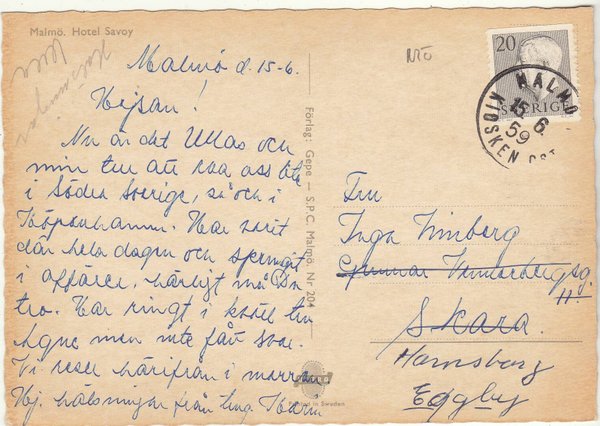 Malmö. Hotel Savoy
Malmö d. 15-6.
Hejsan!
Nu är det Ullas och
min tur att roa oss lite
i Södra Sverige, så och i
Köpenhamn. Har varit
där hela dagen och sprungit
i affärer, härligt må Du
tro. Har ringt i kväll till
Agne men inte fått svar.
Vi reser härifrån i morron
Hej hälsningar från
Förlag: Gepe — S.P.C. Malmö. Nr 204
Printed in Sweden
20
SVERIGE
MALMÖ
15 6
59
KIOSKEN
Fru
Inga Limberg
Gunnar
11
Skara.
Hamsborg
Eggby